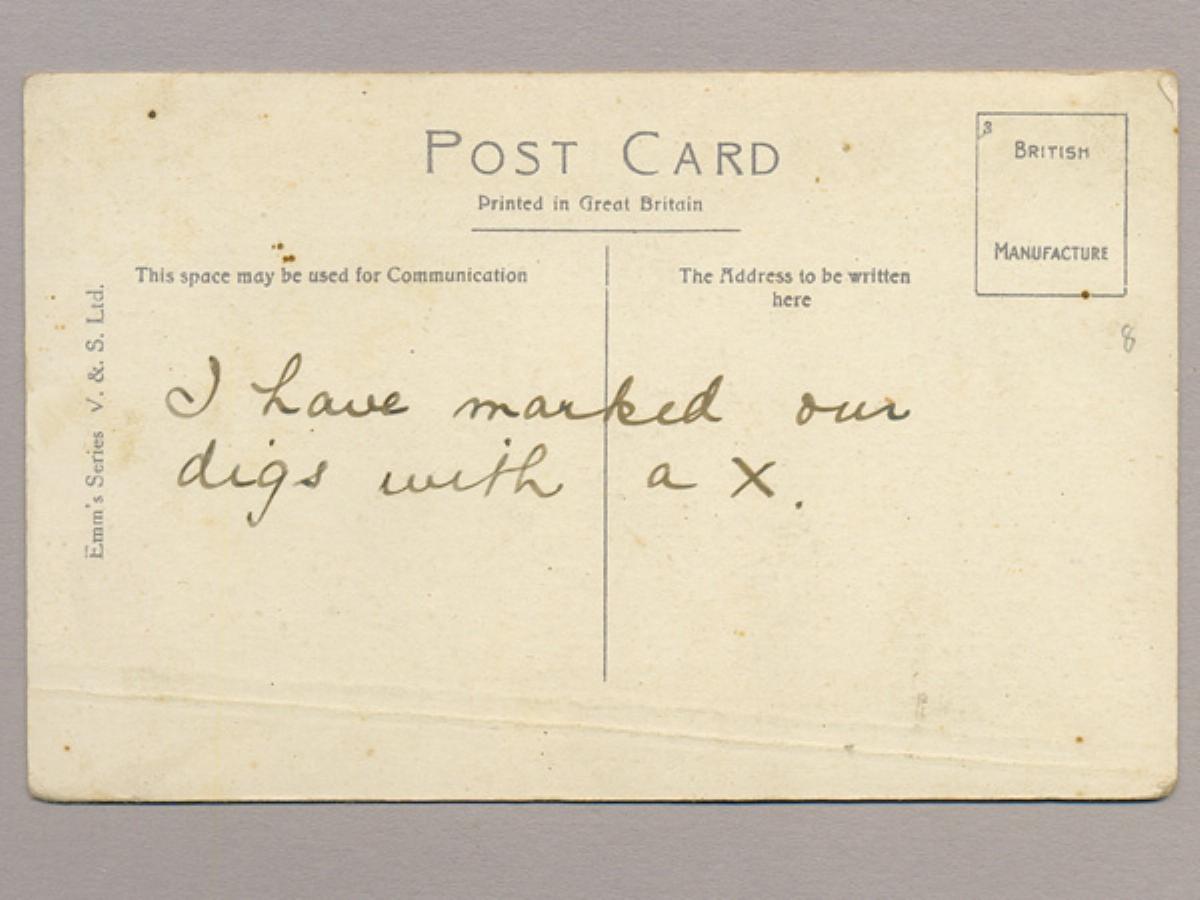 POST CARD
Printed in Great Britain
3
BRITISH
MANUFACTURE
This space may be used for Communication
The Address to be written
here
Emm's Series V. &. S. Ltd.
8
I have marked our
digs with a X.